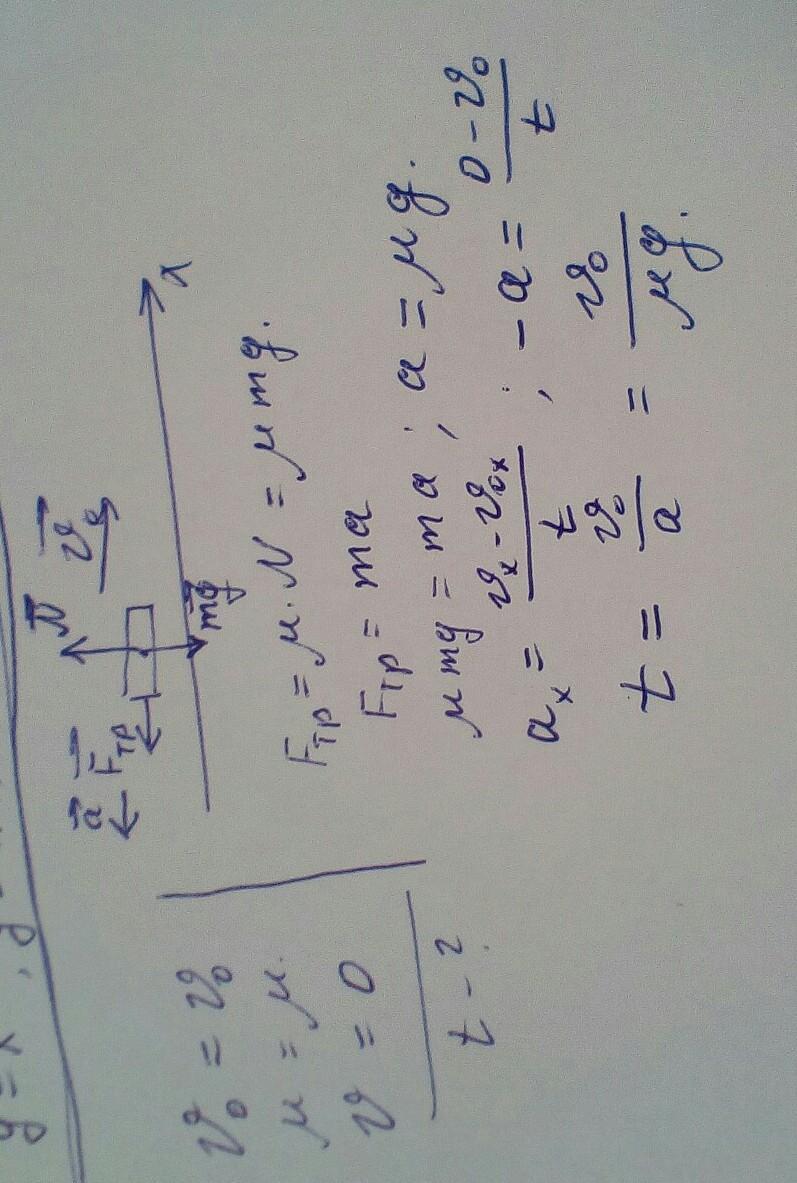 v₀ = v₀
μ = μ
v = 0
t - ?
a⃗ F⃗тр N⃗ v⃗₀
mg⃗
x
Fтр = μ·N = μmg.
Fтр = ma
μmg = ma ; a = μg.
aₓ = (vₓ - v₀ₓ)/t ; -a = (0 - v₀)/t
t = v₀/a = v₀/μg.